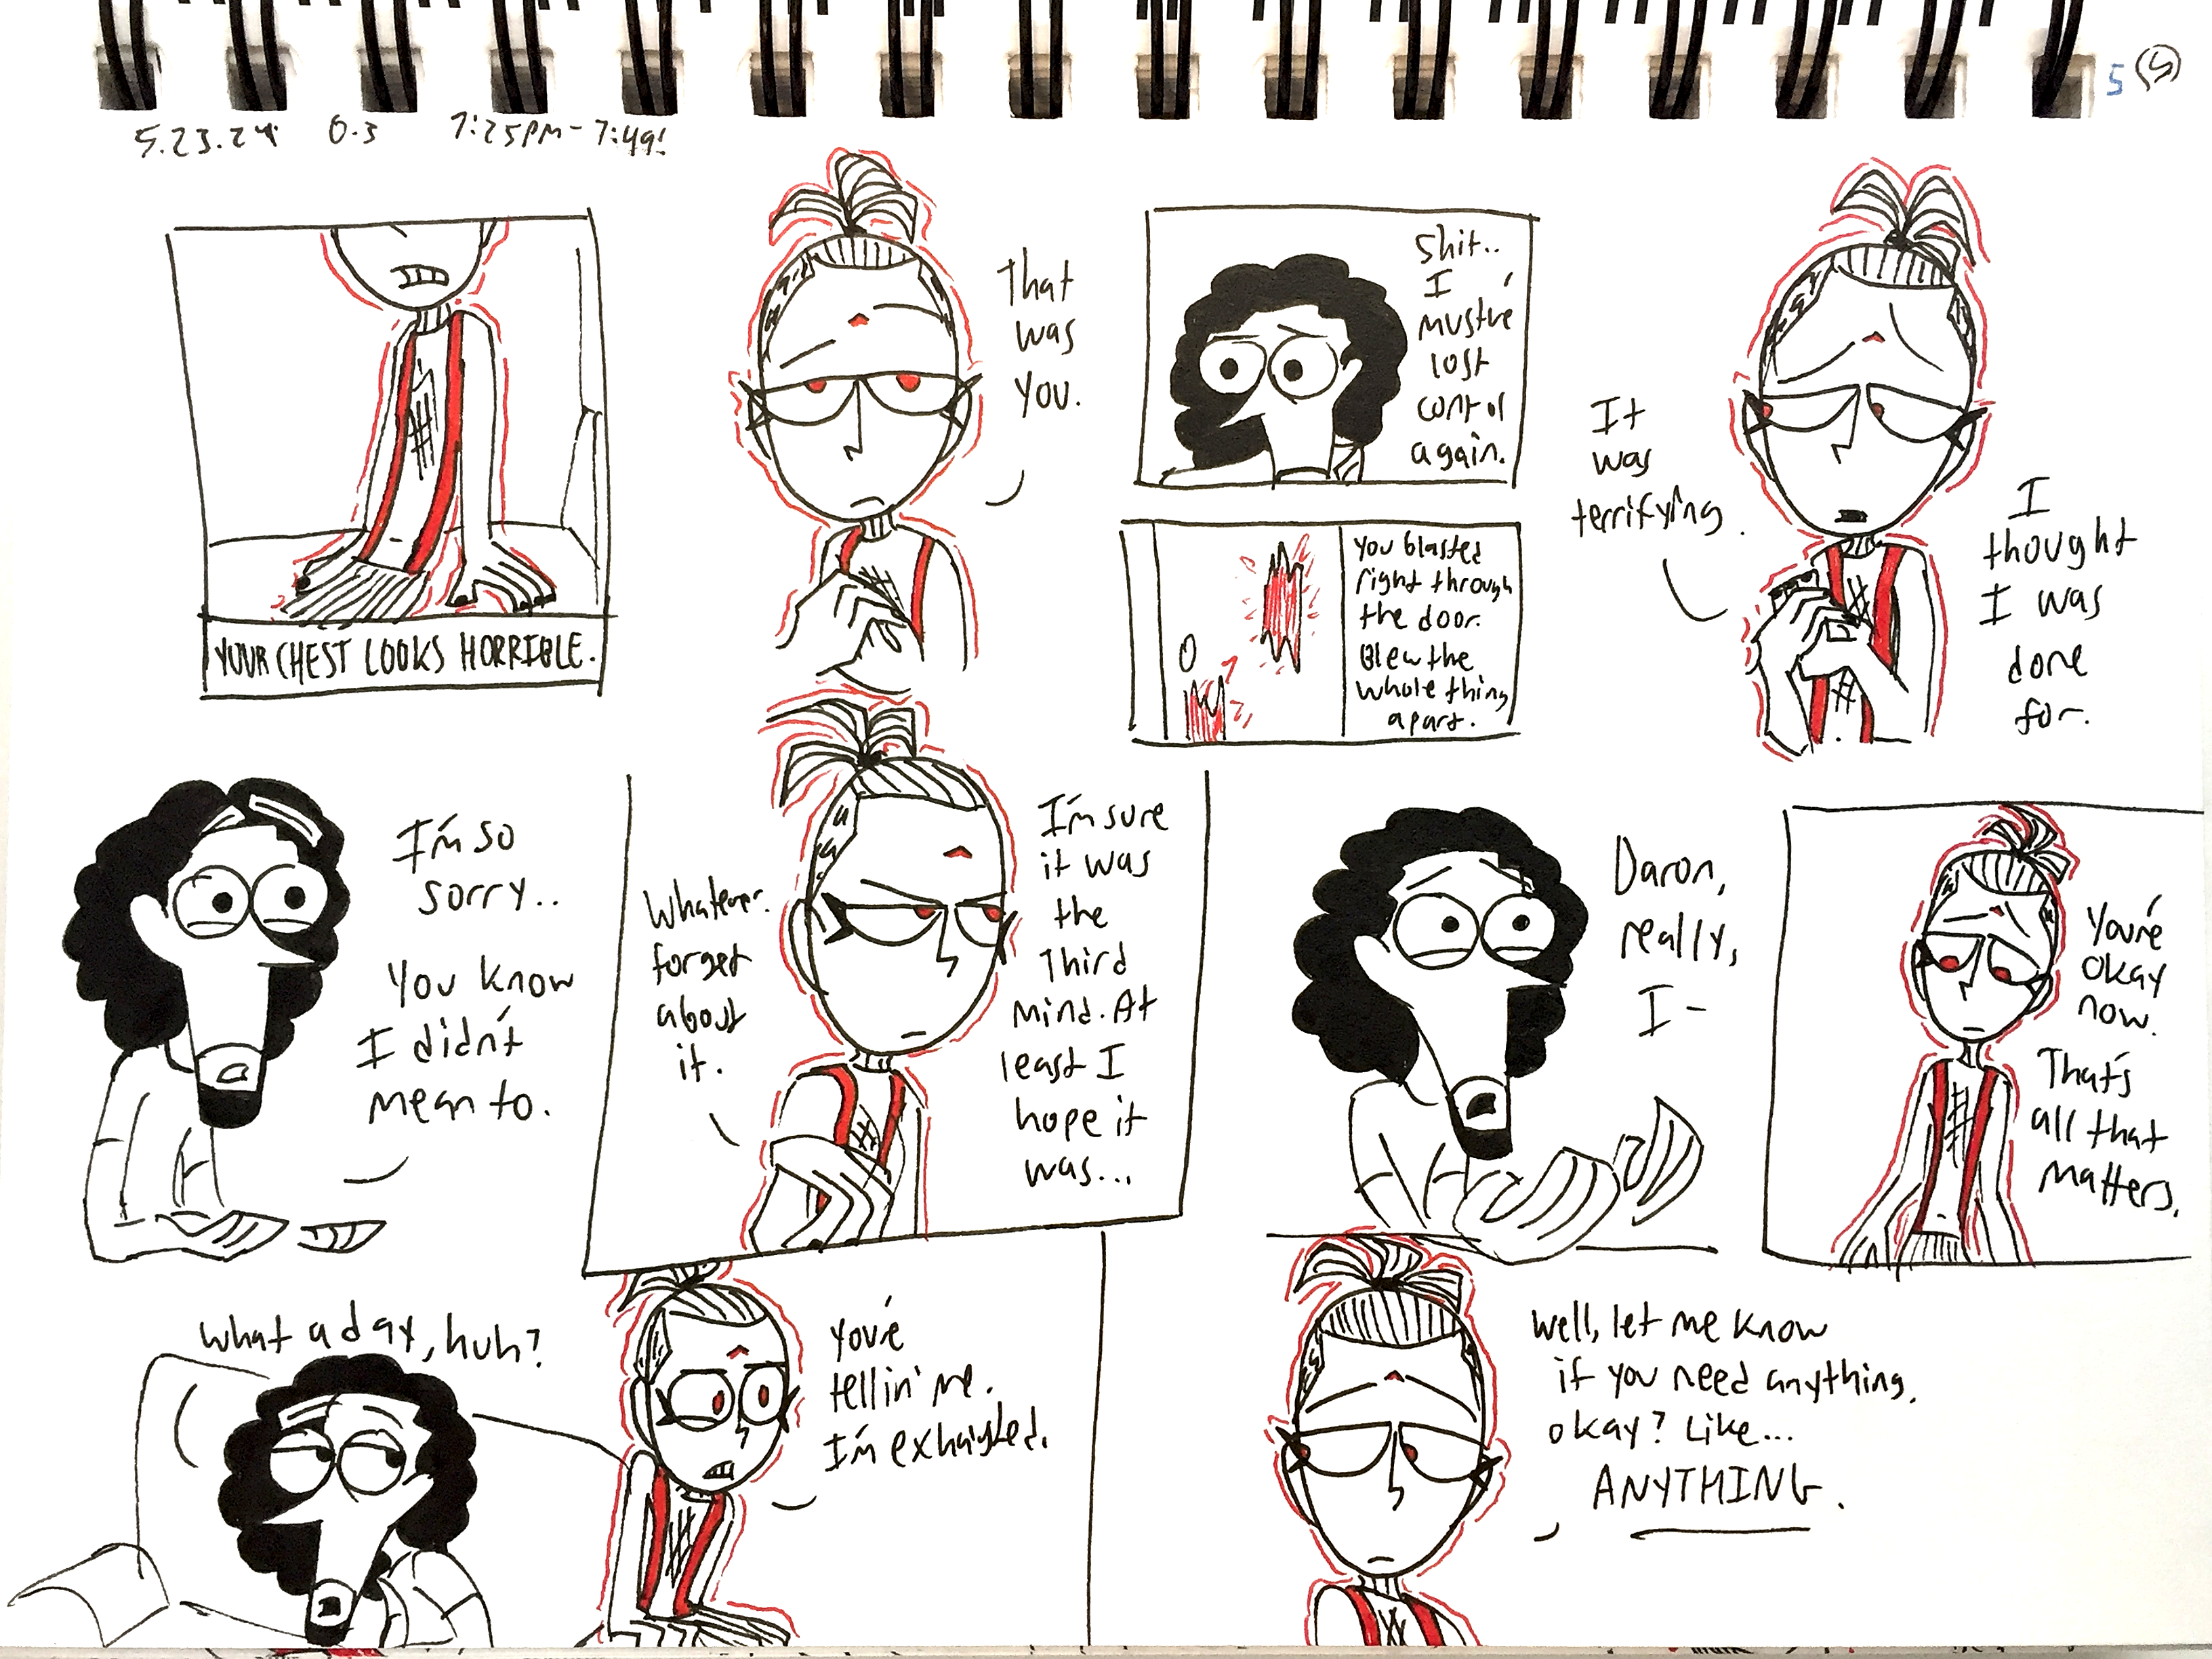 5.23.24 0.3 7:25PM-7:49!
5 5
YOUR CHEST LOOKS HORRIBLE.
That
was
you.
Shit..
I
must've
lost
control
again.
You blasted
right through
the door.
Blew the
whole thing
apart.
It
was
terrifying.
I
thought
I was
done
for.
I'm so
sorry..
You know
I didn't
mean to.
Whatever.
forget
about
it.
I'm sure
it was
the
Third
mind. At
least I
hope it
was...
Daron,
really,
I-
You're
okay
now.
That's
all that
matters.
What a day, huh?
you're
tellin' me.
I'm exhausted.
Well, let me know
if you need anything,
okay? Like...
ANYTHING.